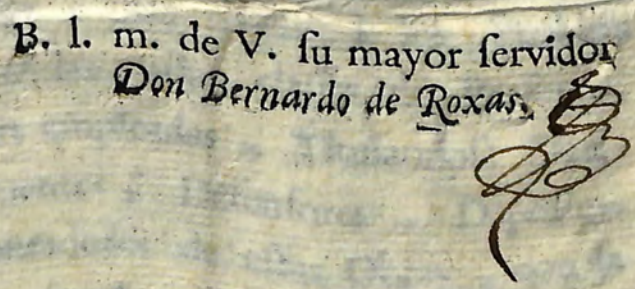 B. l. m. de V. ſu mayor ſervidor
Don Bernardo de Roxas.